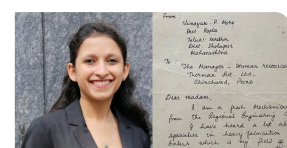 From
Vinayak. P. Mohe
Post. Kopla
Taluk: Madha
Dist. Sholapur
Maharashtra
To
The Manager - Human resources
Thermax Pvt. Ltd,
Chinchwad, Pune.
Dear madam,
I am a fresh Mechanical
from the Regional Engineering
I have heard a lot
specialise in heavy fabrication
boilers which is my field of